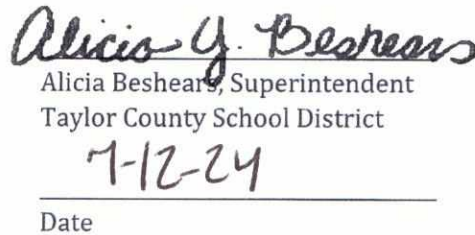 Alicia G. Beshears
Alicia Beshears, Superintendent
Taylor County School District
7-12-24
Date